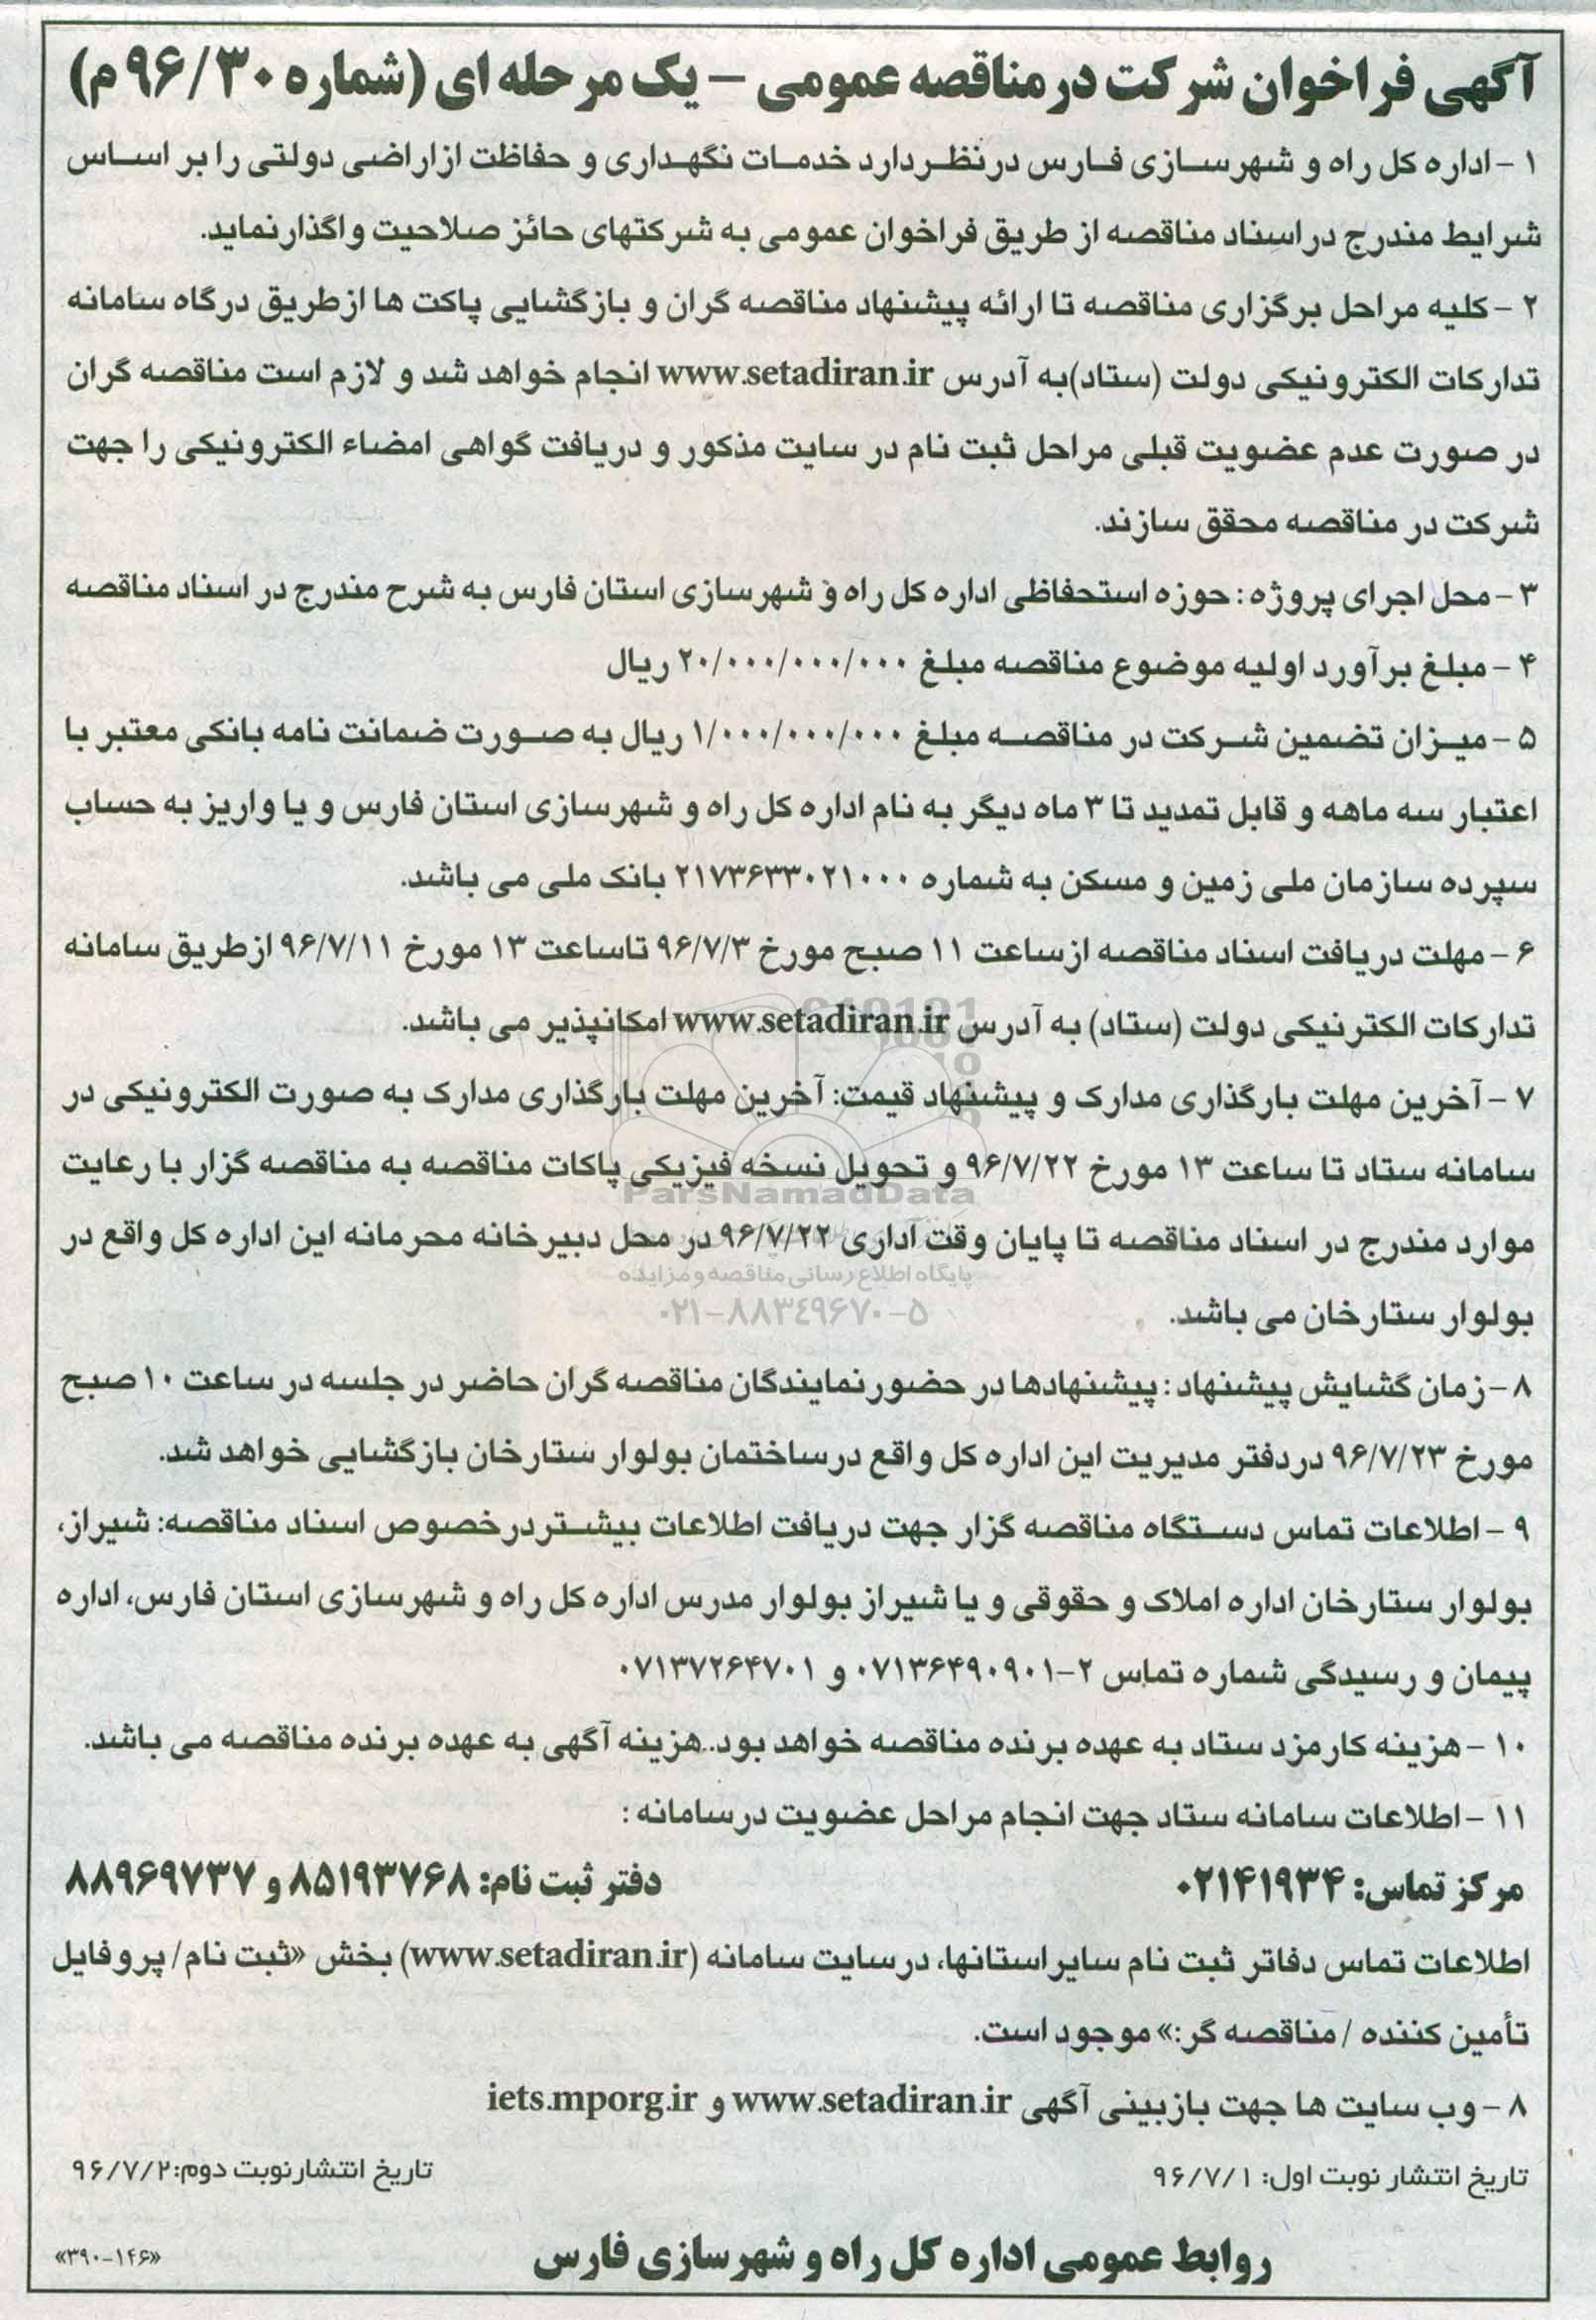 آگهی فراخوان شرکت در مناقصه عمومی – یک مرحله ای (شماره ۹۶/۳۰ م)
۱ - اداره کل راه و شهرسازی فارس درنظردارد خدمات نگهداری و حفاظت ازاراضی دولتی را بر اساس
شرایط مندرج در اسناد مناقصه از طریق فراخوان عمومی به شرکتهای حائز صلاحیت واگذارنماید.
۲ - کلیه مراحل برگزاری مناقصه تا ارائه پیشنهاد مناقصه گران و بازگشایی پاکت ها ازطریق درگاه سامانه
تدارکات الکترونیکی دولت (ستاد)به آدرس www.setadiran.ir انجام خواهد شد و لازم است مناقصه گران
در صورت عدم عضویت قبلی مراحل ثبت نام در سایت مذکور و دریافت گواهی امضاء الکترونیکی را جهت
شرکت در مناقصه محقق سازند.
۳ - محل اجرای پروژه : حوزه استحفاظی اداره کل راه و شهرسازی استان فارس به شرح مندرج در اسناد مناقصه
۴ - مبلغ برآورد اولیه موضوع مناقصه مبلغ ۲۰/۰۰۰/۰۰۰/۰۰۰ ریال
۵ - میزان تضمین شرکت در مناقصه مبلغ ۱/۰۰۰/۰۰۰/۰۰۰ ریال به صورت ضمانت نامه بانکی معتبر با
اعتبار سه ماهه و قابل تمدید تا ۳ ماه دیگر به نام اداره کل راه و شهرسازی استان فارس و یا واریز به حساب
سپرده سازمان ملی زمین و مسکن به شماره ۲۱۷۳۶۳۳۰۲۱۰۰۰ بانک ملی می باشد.
۶ - مهلت دریافت اسناد مناقصه ازساعت ۱۱ صبح مورخ ۹۶/۷/۳ تاساعت ۱۳ مورخ ۹۶/۷/۱۱ ازطریق سامانه
تدارکات الکترنیکی دولت (ستاد) به آدرس www.setadiran.ir امکانپذیر می باشد.
۷ - آخرین مهلت بارگذاری مدارک و پیشنهاد قیمت: آخرین مهلت بارگذاری مدارک به صورت الکترونیکی در
سامانه ستاد تا ساعت ۱۳ مورخ ۹۶/۷/۲۲ و تحویل نسخه فیزیکی پاکات مناقصه به مناقصه گزار با رعایت
ParsNamadData
موارد مندرج در اسناد مناقصه تا پایان وقت اداری ۹۶/۷/۲۲ در محل دبیرخانه محرمانه این اداره کل واقع در
پایگاه اطلاع رسانی مناقصه و مزایده
بولوار ستارخان می باشد.
۰۲۱-۸۸۳۴۹۶۷۰-۵
۸ - زمان گشایش پیشنهاد : پیشنهادها در حضورنمایندگان مناقصه گران حاضر در جلسه در ساعت ۱۰ صبح
مورخ ۹۶/۷/۲۳ دردفتر مدیریت این اداره کل واقع درساختمان بولوار ستارخان بازگشایی خواهد شد.
۹ - اطلاعات تماس دستگاه مناقصه گزار جهت دریافت اطلاعات بیشتردرخصوص اسناد مناقصه: شیراز،
بولوار ستارخان اداره املاک و حقوقی و یا شیراز بولوار مدرس اداره کل راه و شهرسازی استان فارس، اداره
پیمان و رسیدگی شماره تماس ۲-۰۷۱۳۶۴۹۰۹۰۱ و ۰۷۱۳۷۲۶۴۷۰۱
۱۰ - هزینه کارمزد ستاد به عهده برنده مناقصه خواهد بود. هزینه آگهی به عهده برنده مناقصه می باشد.
۱۱ - اطلاعات سامانه ستاد جهت انجام مراحل عضویت درسامانه :
مرکز تماس: ۰۲۱۴۱۹۳۴ دفتر ثبت نام: ۸۵۱۹۳۷۶۸ و ۸۸۹۶۹۷۳۷
اطلاعات تماس دفاتر ثبت نام سایر استانها، درسایت سامانه (www.setadiran.ir) بخش «ثبت نام/ پروفایل
تأمین کننده / مناقصه گر:» موجود است.
۸ - وب سایت ها جهت بازبینی آگهی www.setadiran.ir و iets.mporg.ir
تاریخ انتشار نوبت اول: ۹۶/۷/۱ تاریخ انتشارنوبت دوم: ۹۶/۷/۲
روابط عمومی اداره کل راه و شهرسازی فارس
«۳۹۰-۱۴۶»